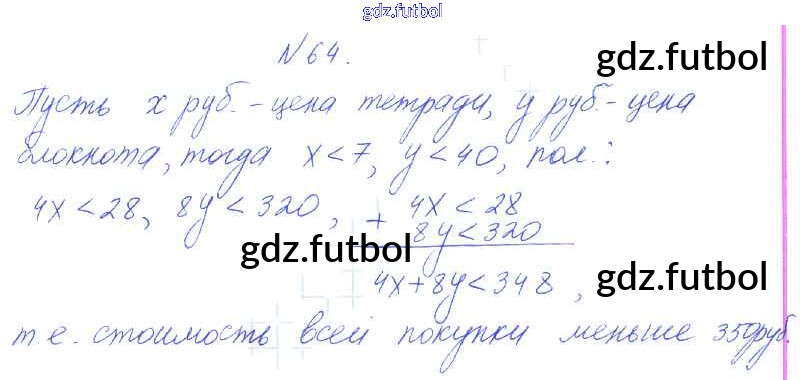 gdz.futbol
№64.
gdz.futbol
Пусть х руб.-цена тетради, у руб.-цена
блокнота, тогда х<7, у<40, пол.:
4х<28, 8у<320, + 4х<28
8у<320
gdz.futbol
4х+8у<348,
gdz.futbol
т.е. стоимость всей покупки меньше 350руб.